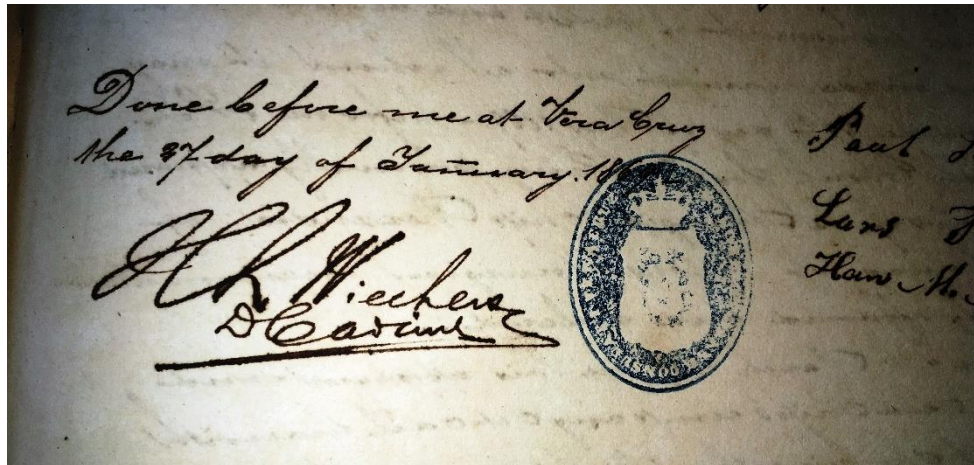 Done before me at Vera Cruz
the 27 day of January. 18
H L Wiechers
Paul
Lars
Hans M.